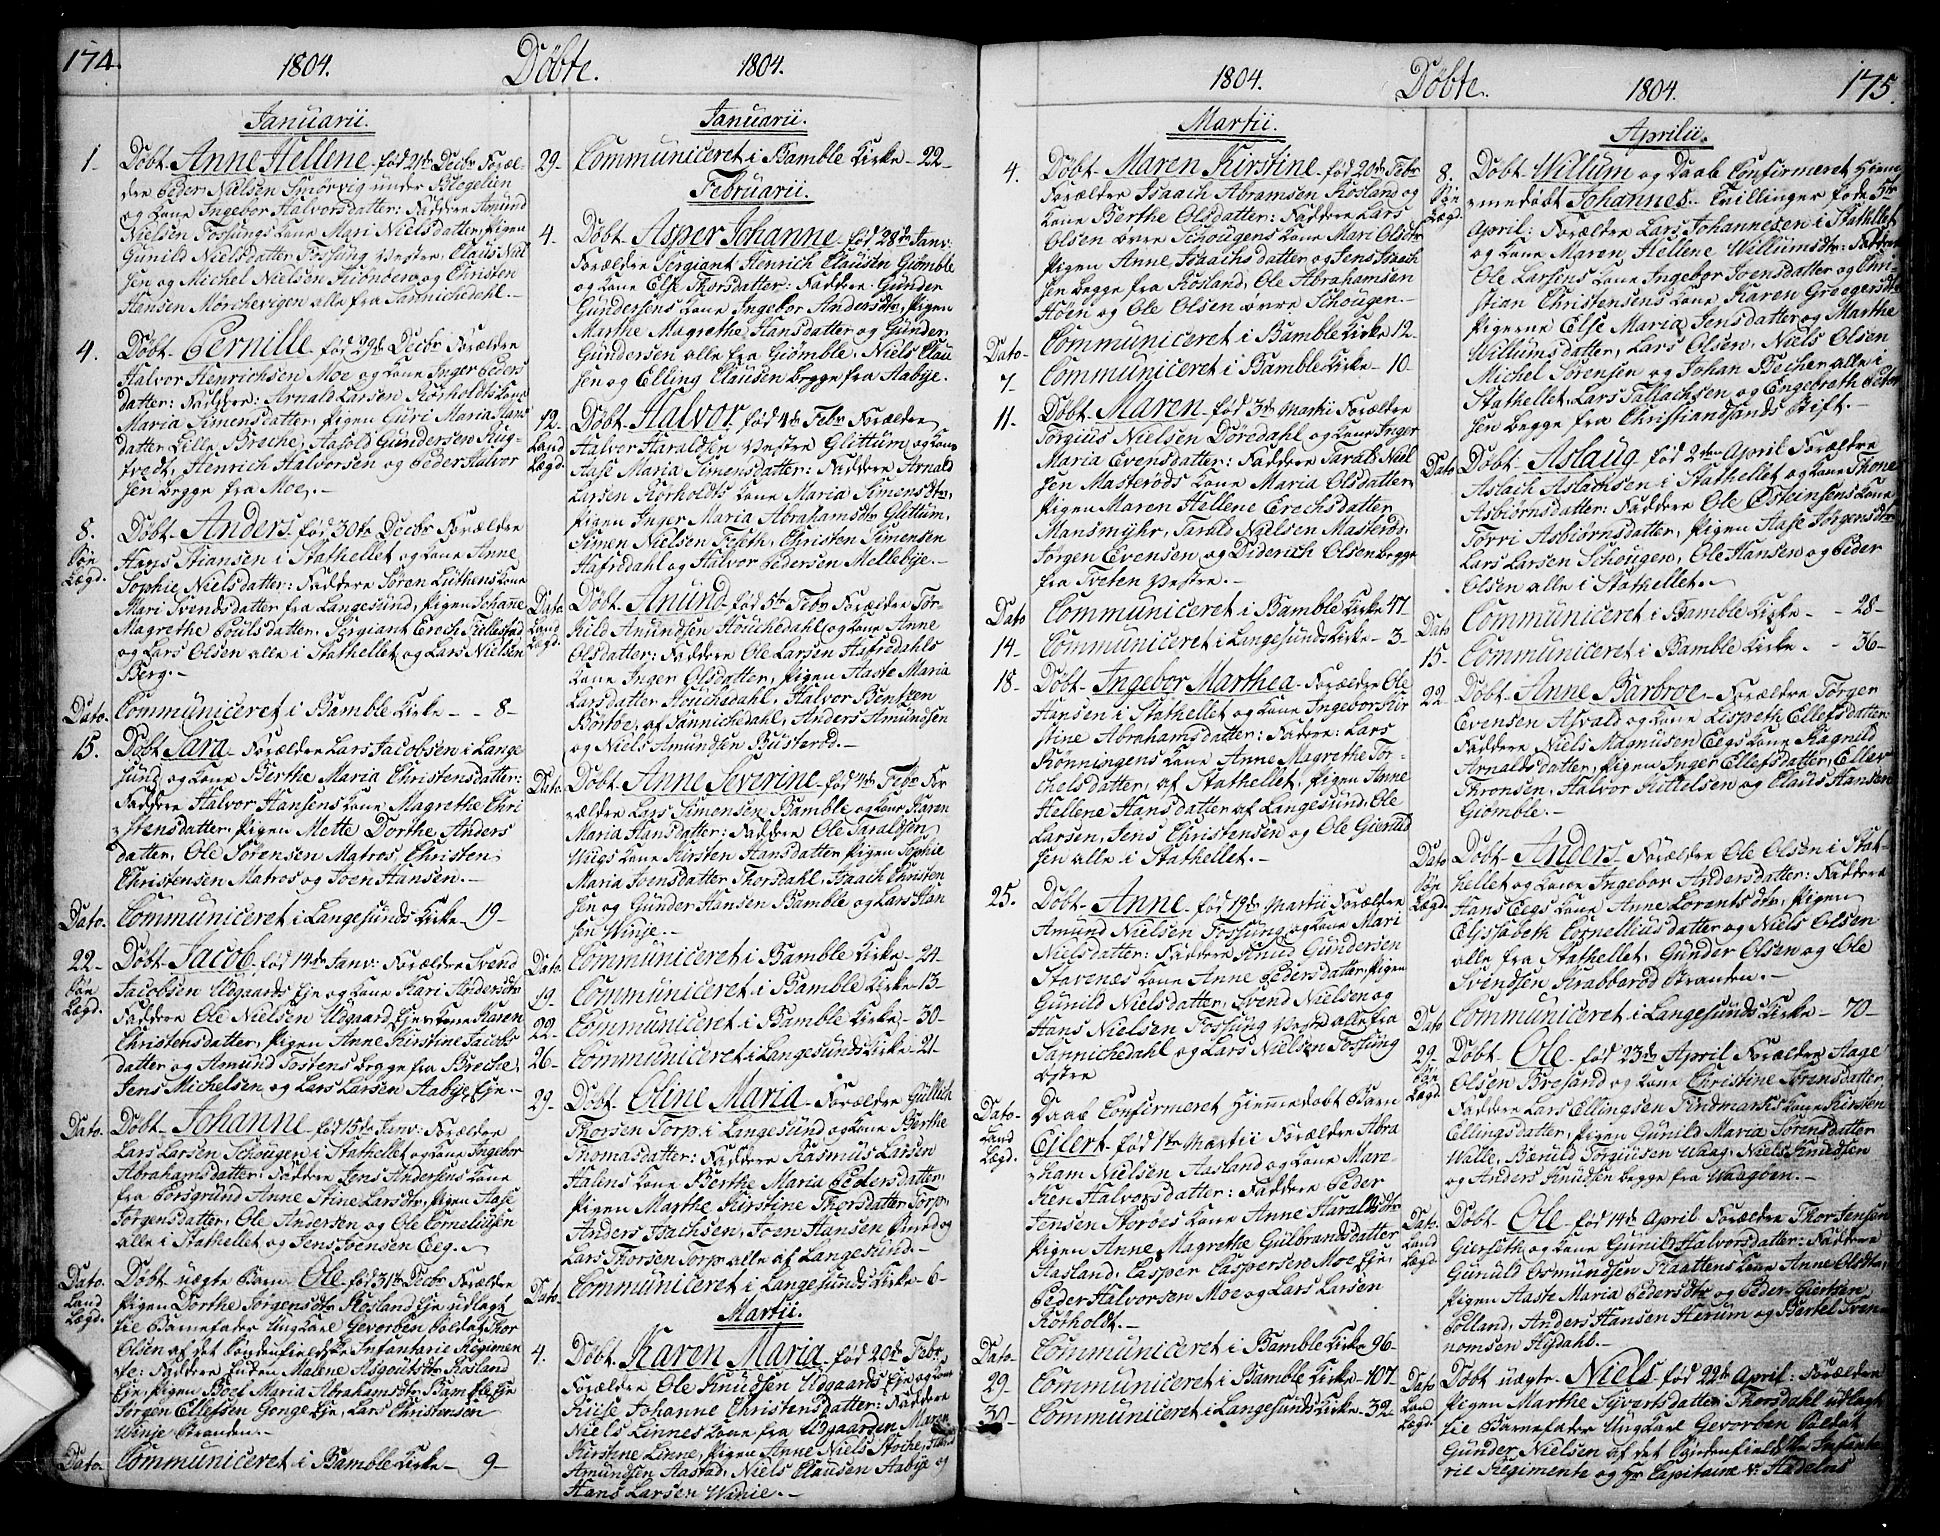 174.
1804. Döbte. 1804.
Januarii.
1. Döbt Anne Hellene fød 21de Decbr Foræl-
dre Peder Nielsen Smörvig under Blegelien
og Kone Ingebor Halvorsdatter: Faddere Amund
Nielsen Fossungs Kone Mari Nielsdatter, Pigen
Gunild Nielsdatter Fossung Vestre, Claus Niel
sen og Michel Nielsen og Christen
Hansen Mörchevigen alle fra Sannichedahl.-
4. Döbt Pernille fød 29de Decbr Forældre
Halvor Henrichsen Moe og Kone Inger Peders
datter: Faddere: Arnald Larsen Korholdts Kone
Maria Simensdatter, Pigen Guri Maria Hans
datter Lille Breche, Aasold Gundersen Rug-
tvedt, Henrich Halvorsen og Peder Halvor
sen begge fra Moe.-
8. Döbt Anders fød 30te Decbr Forældre
Söe Lægd. Hans Stiansen i Stathellet og Kone Anne
Sophie Nielsdatter: Faddere Søren Luthens Kone
Mari Svendsdatter fra Langesund, Pigen Johanne
Magrethe Poulsdatter, Sergiant Erech
og Lars Olsen alle i Stathellet og Lars Nielsen
Berg.-
Dato. Communiceret i Bamble Kirke - - 8-
15. Döbt Sara Forældre Lars Jacobsen i Lange
sund og Kone Berthe Maria Christensdatter:
Faddere Halvor Hansens Kone Magrethe Chri
stensdatter, Pigen Mette Dorthe Anders
datter, Ole Sörensen Matros, Christen
Christensen Matros og Joen Hansen.-
Dato. Communiceret i Langesunds Kirke - 19-
22- Döbt Jacob fød 14de Janv: Forældre Svend
Söe Lægd. Jacobsen Udgaards Eje og Kone Kari Andersdtr
Faddere Ole Nielsen Udgaard Ejes Kone Karen
Christensdatter, Pigen Anne Kirstine Jacobs
datter og Amund Tostens begge fra Breche,
Jens Michelsen og Lars Larsen Aabye Eje.-
Dato. Döbt Johanne fød 15de Janv: Forældre
Lars Larsen Schougen i Stathellet og Kone Ingebor
Abrahamsdatter: Faddere Jens Andersens Kone
fra Porsgrund Anne Stine Larsdtr, Pigen Aase
Jörgensdatter, Ole Andersen og Ole Corneliusen
alle i Stathellet og Jens Joensen Eeg.-
Dato. Döbt uægte Barn Ole fød 31te Decbr Forældre
Land Lægd. Pigen Dorthe Jörgensdtr Rosland Eje udlagt
til Barnefader Ung Karl Gevorben Soldat Thor
Olsen af det Söndenfieldske Infanterie Regimen
te: Faddere Enken Malene Alsguthsdtr Rosland
Eje, Pigen Boel Maria Abrahamsdtr Bamble Eje
Jörgen Ellefsen Gonge Eje, Lars Christensen
Winje Stranden.-
Dato. Communiceret i Bamble Kirke - 9-
Januarii.
29- Communiceret i Bamble Kirke - 22-
Februarii.
4. Döbt Asper Johanne fød 28de Janv:
Forældre Sergiant Henrich Clausen Giömble
og Kone Else Thorsdatter: Faddere: Gunder
Gundersens Kone Ingebor Andersdtr, Pigen
Marthe Magrethe Hansdatter og Gunder
Gundersen alle fra Giömble, Niels Clau
sen og Elling Clausen begge fra Aabye.-
12. Döbt Halvor fød 4de Febr Forældre
Land Lægd. Halvor Haraldsen Vestre Glittum og Kone
Aase Maria Simensdatter: Faddere Arnald
Larsen Korholdts Kone Maria Simensdtr,
Pigen Inger Maria Abrahamsdtr Glittum,
Simen Nielsen Toseth, Christen Simensen
Hafsedahl og Halvor Pedersen Mellebye.-
Dato Döbt Amund fød 5te Febr Forældre Tor-
Land Lægd. kild Amundsen Houchedahl og Kone Anne
Olsdatter: Faddere Ole Larsen Hafredahls
Kone Inger Olsdatter, Pigen Aaste Maria
Larsdatter Houchedahl, Halvor Bentzen
Borboe af Sannichedahl, Anders Amundsen
og Niels Amundsen Busterod.-
Dato. Döbt Anne Severine fød 4de Febr For
ældre Lars Simensen Bamble og Kone Karen
Maria Hansdatter: Faddere Ole Taraldsen
Waags Kone Kirsten Hansdatter, Pigen Sophie
Maria Joensdatter Thorsdahl, Isaach Christen
sen og Gunder Hansen Bamble og Lars Han
sen Winje.-
Dato. Communiceret i Bamble Kirke - 24-
19. Communiceret i Bamble Kirke - 13-
22- Communiceret i Bamble Kirke - 30-
26- Communiceret i Langesunds Kirke - 21-
29. Döbt Oline Maria - Forældre Gullich
Thorsen Torp i Langesund og Kone Berthe
Thomasdatter: Faddere Rasmus Larsen
Halens Kone Berthe Maria Pedersdatter,
Pigen Marthe Kirstine Thorsdatter Torp,
Anders Isachsen, Joen Hansen Gund og
Lars Thorsen Torp alle af Langesund.-
Dato. Communiceret i Langesunds Kirke - 6-
Martii.
4. Döbt Karen Maria fød 20de Febr
Forældre Ole Knudsen Udgaards Eje og Kone
Johanne Christensdatter: Faddere
Niels Linnes Kone fra Udgaarden Maren
Kirstine Linne, Pigen Anne Niels Stoche,
Amundsen Aastad, Niels Clausen Aabye og
Hans Larsen Winie.-
175.
1804. Döbte. 1804.
Martii.
4. Döbt Maren Kirstine fød 20de Febr
Forældre Isaach Abramsen Rosland og
Kone Berthe Olsdatter: Faddere Lars
Olsen övre Schougens Kone Mari Olsdtr
Pigen Anne Isaachsdatter og Jens Isaach
sen begge fra Rosland, Ole Abrahamsen
Höen og Ole Olsen övre Schougen.-
Dato- Communiceret i Bamble Kirke 12-
7- Communiceret i Bamble Kirke - 10-
11. Döbt Maren fød 3de Martii Forældre
Torgius Nielsen Döredahl og Kone Inger
Maria Evensdatter: Faddere Tarald Niel
sen Masterods Kone Maria Olsdatter,
Pigen Maren Hellene Erechsdatter
Mansmyhr, Tarald Nielsen Masterod,
Jörgen Evensen og Diderich Olsen begge
fra Tveten Vestre.-
Dato Communiceret i Bamble Kirke 47-
14- Communiceret i Langesunds Kirke - 3-
18- Döbt Ingebor Marthea Forældre Ole
Hansen i Stathellet og Kone Ingebor Kir
stine Abrahamsdatter: Faddere: Lars
Rönningens Kone Anne Magrethe Tor-
chelsdatter af Stathellet, Pigen Anne
Hellene Hansdatter af Langesund, Ole
Larsen, Jens Christensen og Ole Gierud
sen alle i Stathellet.-
25. Döbt Anne fød 19de Martii Forældre
Amund Nielsen Fossung og Kone Mari
Nielsdatter: Faddere Knud Gundersen
Stavenæs Kone Anne Pedersdatter, Pigen
Gunild Nielsdatter, Svend Nielsen og
Hans Nielsen Fossung Vestre alle fra
Sannichedahl og Lars Nielsen Fossung
østre
Dato- Daab Confirmeret Hiemmedöbt Barn
Land Lægd. Eilert fød 1de Martii Forældre Abra
ham Nielsen Aasland og Kone Mare-
then Halvorsdatter: Faddere Peder
Jensen Kone Anne Haraldsdtr
Pigen Anne Magrethe Gulbrandsdatter
Aasland, Casper Caspersen Moe Eje,
Peder Halvorsen Moe og Lars Larsen
Korholdt.-
Dato- Communiceret i Bamble Kirke 96-
29- Communiceret i Bamble Kirke - 107-
30- Communiceret i Langesunds Kirke - 32-
Aprilii.
8. Döbt Willum og Daab Confirmeret Hiem
Söe Lægd. medöbt Johannes Tvillinger fødde 5te
April: Forældre Lars Johannesen i Stathellet
og Kone Maren Hellene Willumsdtr: Faddere
Ole Larsens Kone Ingebor Joensdatter og Chri-
stian Christensens Kone Karen Gregersdtr
Pigerne Else Maria Jensdatter og Marthe
Willumsdatter, Lars Olsen, Niels Olsen
Michel Sörensen og Johan Becher alle i
Stathellet, Lars Tallachsen og Engebreth Peder
sen begge fra Christiansands Stift.-
Dato Döbt Aslaug fød 2den April Forældre
Aslach Aslachsen i Stathellet og Kone Thone
Asbiörnsdatter: Faddere Ole Østeinsens Kone
Torri Asbiörnsdatter, Pigen Aase Jörgensdtr
Lars Larsen Schougen, Ole Hansen og Peder
Olsen alle i Stathellet.-
Communiceret i Bamble Kirke - - 28-
Dato
15- Communiceret i Bamble Kirke - - 36-
22. Döbt Anne Barbroe - Forældre Jörgen
Evensen Asvald og Kone Lispeth Ellefsdatter
Faddere Niels Magnusen Eegs Kone Ragnild
Arnaldsdatter, Pigen Inger Ellefsdatter, Ellev
Thronsen, Halvor Kittelsen og Claus Hansen
Giömble.-
Dato Döbt Anders Forældre Ole Olsen i Stat-
Söe Lægd. hellet og Kone Ingebor Andersdatter: Faddere
Hans Eegs Kone Anne Lorentsdtr, Pigen
Elisabeth Cornelliusdatter og Niels Olsen
alle fra Stathellet, Gunder Olsen og Ole
Svendsen Krabberöd Stranden.-
Dato Communiceret i Langesunds Kirke - 70-
29. Döbt Ole fød 23de April Forældre Aage
Söe Lægd. Olsen Bresand og Kone Christine Sörensdatter
Faddere Lars Ellingsen Findmarks Kone Kirsten
Ellingsdatter, Pigen Gunild Maria Sörensdatter
Walle, Bærild Torgiusen Waag, Niels Knudsen
og Anders Knudsen begge fra Waagöen.-
Dato. Döbt Ole fød 14de April Forældre Thor Jensen
Land Lægd. Gierseth og Kone Gunild Halvorsdatter: Faddere
Gunuld Osmundsen Plaattens Kone Anne Olsdtr,
Pigen Aaste Maria Pedersdtr og Peder Giertsen
Holland, Anders Hansen Herum og Bertel Sven-
nomsen Hegdahl.-
Dato Döbt uægte Niels fød 22de April: Forældre
Land Lægd. Pigen Marthe Syvertsdatter Thorsdahl udlagt
til Barnefader Ung Karl Gevorben Soldat
Gunder Nielsen af det Söndenfieldske Infante
rie Regimente og hr Capitaine v: Hadelns